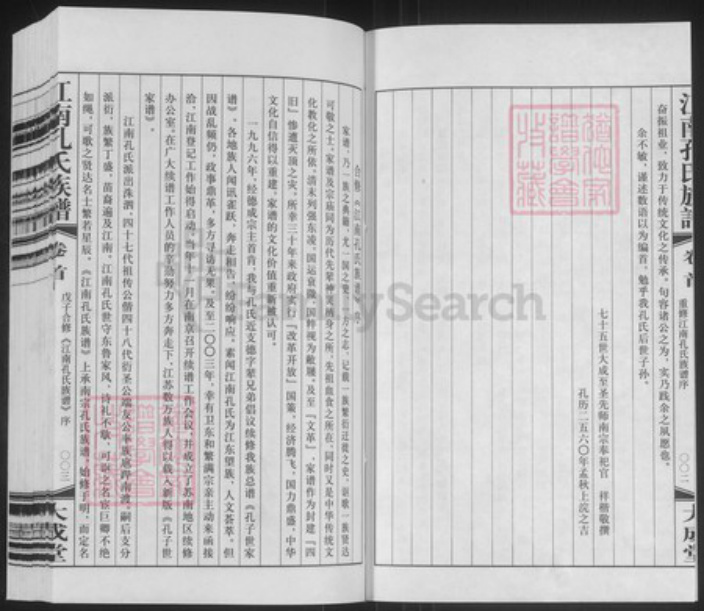 江南孔氏族譜
卷首
重修江南孔氏族譜序
〇〇二
大成堂
奋振祖业，致力于传统文化之传承。句容诸公之为，实乃践余之夙愿也。
余不敏，谨述数语以为编首，勉乎我孔氏后世子孙。
七十五世大成至圣先师南宗奉祀官　祥楷敬撰
孔历二五六〇年孟秋上浣之吉
合修《江南孔氏族谱》序
家谱，乃一族之典籍，尤一国之史，一方之志，记载一族繁衍迁徙之史，讴歌一族贤达
可敬之士，家谱及宗庙同为历代先辈神灵栖身之所，先祖血食之所在，同时又是中华传统文
化教化之所依。清末列强东凌，国运衰微，国粹视为敝屣。及至『文革』，家谱作为封建『四
旧』惨遭灭顶之灾。所幸三十年来政府实行『改革开放』国策，经济腾飞，国力鼎盛，中华
文化自信得以重建，家谱的文化价值重新被认可。
一九九六年，经德成宗主首肯，我与孔氏近支德字辈兄弟倡议续修我族总谱《孔子世家
谱》，各地族人闻讯雀跃，奔走相告，纷纷响应。素闻江南孔氏为江东望族，人文荟萃，但
因战乱频仍，政事鼎革，多方寻访无果。及至二〇〇三年，幸有卫东和繁满宗亲主动来函接
洽，江南登记工作始得启动。当年十一月在南京召开续谱工作会议，并成立了苏南地区续修
办公室。在广大续谱工作人员的辛勤努力多方奔走下，江苏数万族人得以载入新版《孔子世
家谱》。
江南孔氏派出洙泗，四十七代祖传公偕四十八代衍圣公端友公率族扈跸南渡，嗣后支分
派衍，族繁丁盛，苗裔遍及江南。江南孔氏世守东鲁家风，诗礼不坠，可咏之名宦巨卿不绝
如绳，可歌之贤达名士繁若星辰。《江南孔氏族谱》上承南宗孔氏族谱，始修于明，而定名
江南孔氏族譜
卷首
戊子合修《江南孔氏族谱》序
〇〇三
大成堂
FamilySearch